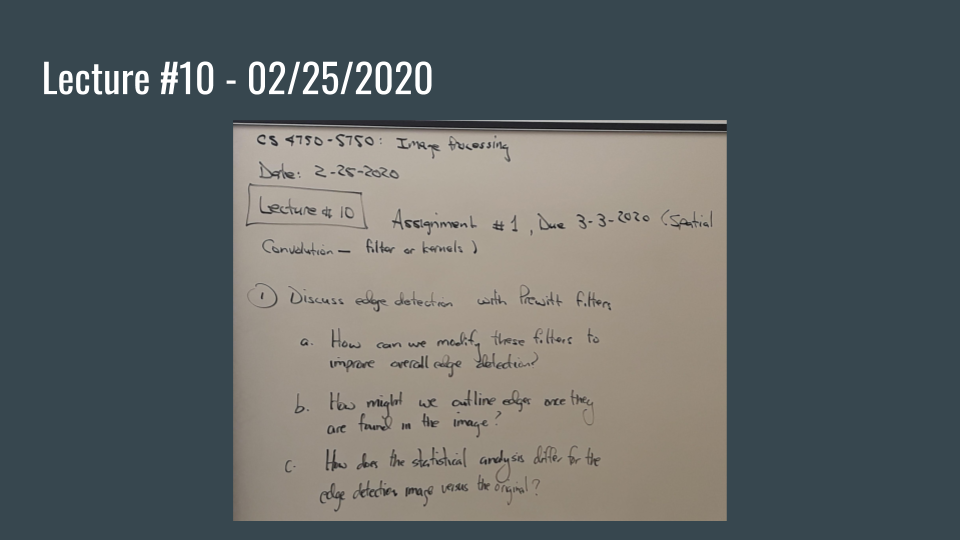 Lecture #10 - 02/25/2020
CS 4750-5750: Image Processing
Date: 2-25-2020
Lecture # 10
Assignment #1, Due 3-3-2020 (Spatial
Convolution — filter or kernels)
1 Discuss edge detection with Prewitt filters
a. How can we modify these filters to
improve overall edge detection?
b. How might we outline edges once they
are found in the image?
c. How does the statistical analysis differ for the
edge detection image versus the original?